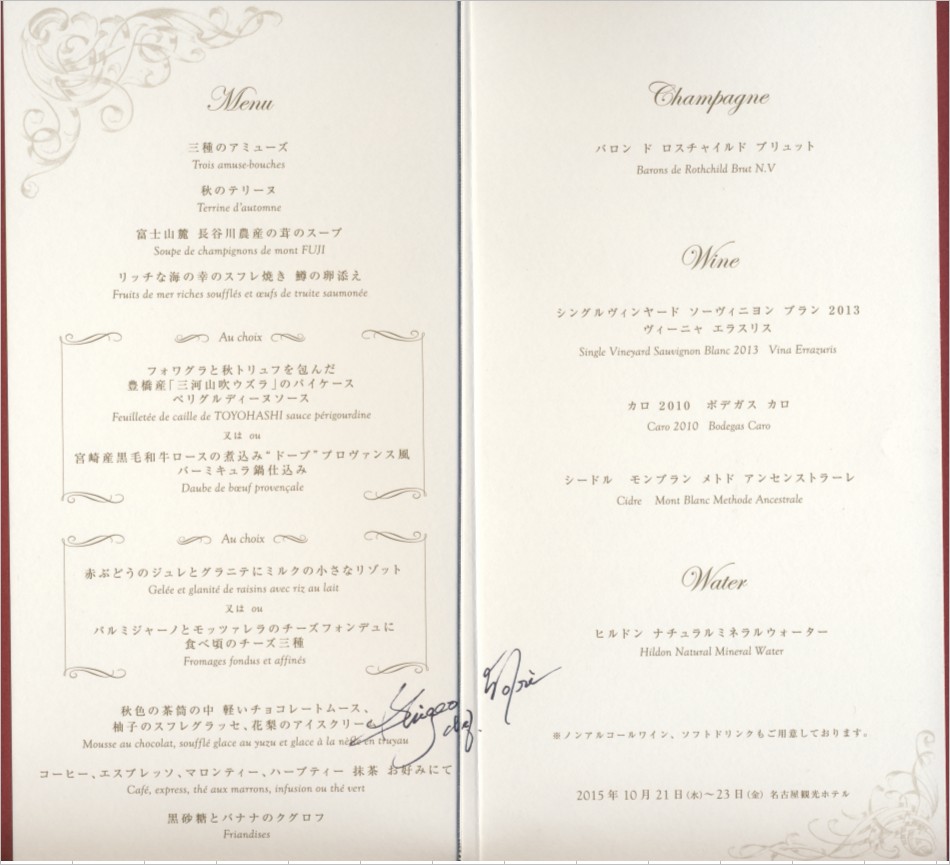 Menu
三種のアミューズ
Trois amuse-bouches
秋のテリーヌ
Terrine d'automne
富士山麓 長谷川農産の茸のスープ
Soupe de champignons de mont FUJI
リッチな海の幸のスフレ焼き 鱒の卵添え
Fruits de mer riches soufflés et œufs de truite saumonée
Au choix
フォワグラと秋トリュフを包んだ
豊橋産「三河山吹ウズラ」のパイケース
ペリグルディーヌソース
Feuilletée de caille de TOYOHASHI sauce périgourdine
又は ou
宮崎産黒毛和牛ロースの煮込み“ドーブ”プロヴァンス風
バーミキュラ鍋仕込み
Daube de bœuf provençale
Au choix
赤ぶどうのジュレとグラニテにミルクの小さなリゾット
Gelée et glanité de raisins avec riz au lait
又は ou
パルミジャーノとモッツァレラのチーズフォンデュに
食べ頃のチーズ三種
Fromages fondus et affinés
秋色の茶筒の中 軽いチョコレートムース、
柚子のスフレグラッセ、花梨のアイスクリーム
Mousse au chocolat, soufflé glace au yuzu et glace à la nèfle en tnuyau
コーヒー、エスプレッソ、マロンティー、ハーブティー 抹茶 お好みにて
Café, express, thé aux marrons, infusion ou thé vert
黒砂糖とバナナのクグロフ
Friandises
Champagne
バロン ド ロスチャイルド ブリュット
Barons de Rothchild Brut N.V
Wine
シングルヴィンヤード ソーヴィニヨン ブラン 2013
ヴィーニャ エラスリス
Single Vineyard Sauvignon Blanc 2013 Vina Errazuris
カロ 2010 ボデガス カロ
Caro 2010 Bodegas Caro
シードル モンブラン メトド アンセンストラーレ
Cidre Mont Blanc Methode Ancestrale
Water
ヒルドン ナチュラルミネラルウォーター
Hildon Natural Mineral Water
※ノンアルコールワイン、ソフトドリンクもご用意しております。
2015年 10月 21日(水)～23日(金) 名古屋観光ホテル